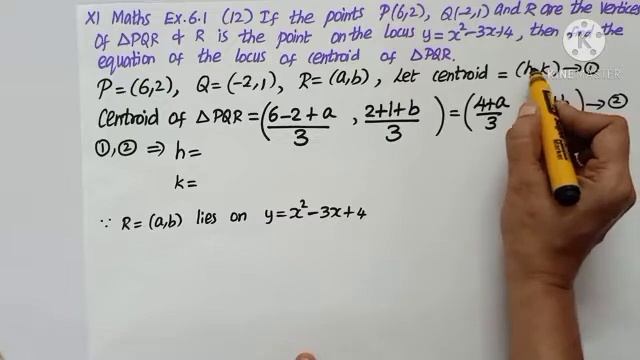 XI Maths Ex.6.1 (12) If the points P(6,2), Q(-2,1) And R Are the Vertices
Of △PQR & R is the point on the locus y=x²-3x+4, then the
equation of the locus of centroid of △PQR.
P=(6,2), Q=(-2,1), R=(a,b), Let centroid = (h,k)→①
Centroid of △PQR = ((6-2+a)/3 , (2+1+b)/3) = ((4+a)/3 )→②
①,② ⇒ h=
k=
∵ R=(a,b) lies on y=x²-3x+4
KINEMASTER